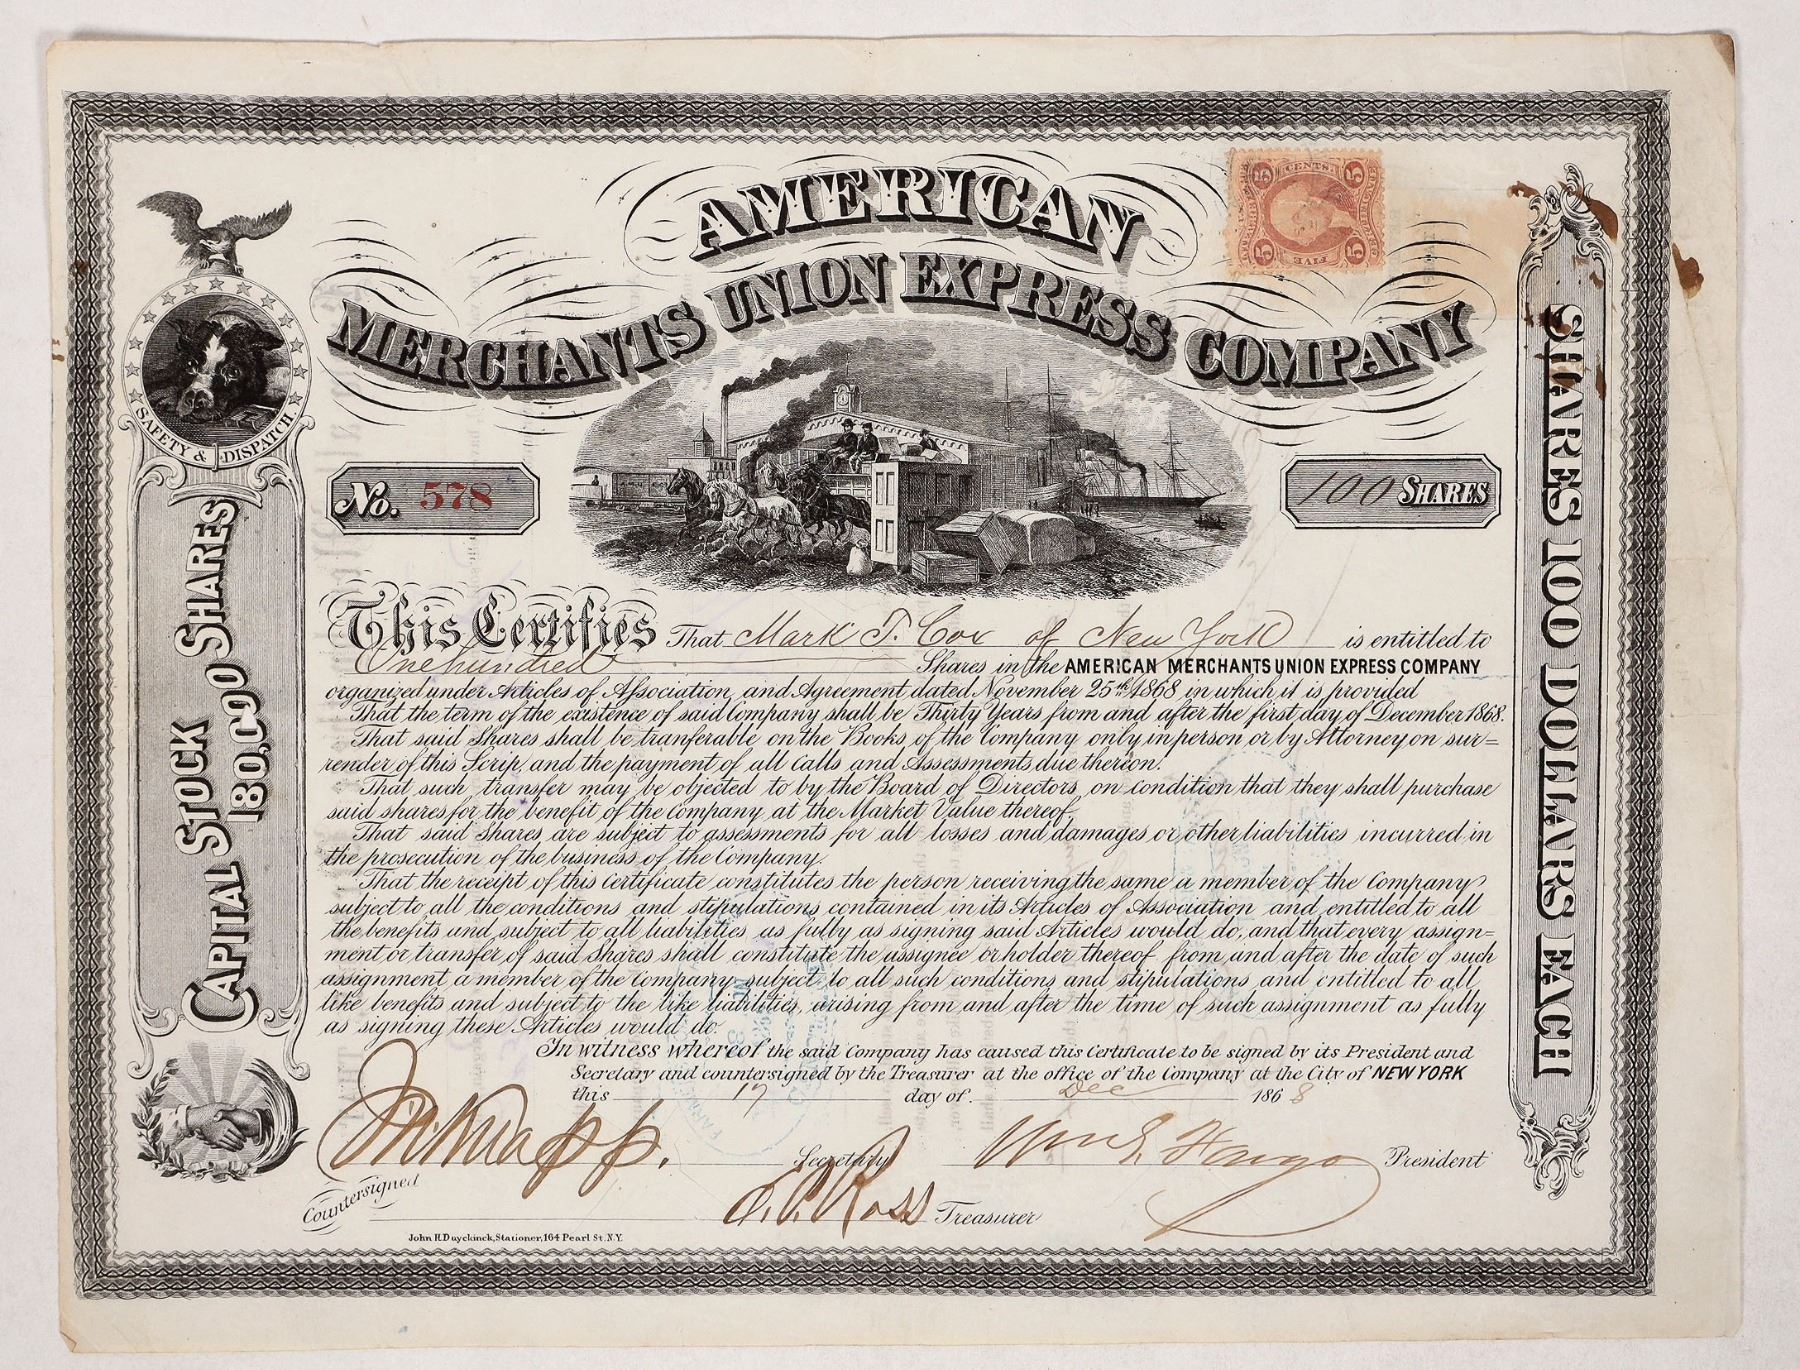 AMERICAN
MERCHANTS UNION EXPRESS COMPANY
CENTS.
5 5
5 5
FIVE
SAFETY & DISPATCH
CAPITAL STOCK
180,000 SHARES
SHARES 100 DOLLARS EACH
No. 578
100 SHARES
This Certifies That Mark T. Cox of New York is entitled to
One hundred Shares in the AMERICAN MERCHANTS UNION EXPRESS COMPANY
organized under Articles of Association and Agreement dated November 25th 1868 in which it is provided
That the term of the existence of said Company shall be Thirty Years from and after the first day of December 1868.
That said Shares shall be tranferable on the Books of the Company only in person or by Attorney on sur=
render of this Scrip, and the payment of all Calls and Assessments due thereon.
That such transfer may be objected to by the Board of Directors, on condition that they shall purchase
said shares, for the benefit of the Company, at the Market Value thereof.
That said Shares are subject to assessments for all losses and damages or other liabilities incurred in
the prosecution of the business of the Company.
That the receipt of this Certificate constitutes the person receiving the same a member of the Company
subject to all the conditions and stipulations contained in its Articles of Association and entitled to all
the benefits and subject to all liabilities as fully as signing said Articles would do, and that every assign=
ment or transfer of said Shares shall constitute the assignee or holder thereof from and after the date of such
assignment a member of the Company subject to all such conditions and stipulations and entitled to all
like benefits and subject to the like liabilities, arising from and after the time of such assignment as fully
as signing these Articles would do.
In witness whereof the said Company has caused this Certificate to be signed by its President and
Secretary and countersigned by the Treasurer at the office of the Company at the City of NEW YORK
this 17 day of Dec 1868
J.N. Knapp. Secretary Wm G. Fargo President
Countersigned J.C. Ross Treasurer
John H. Duyckinck, Stationer, 164 Pearl St. N.Y.